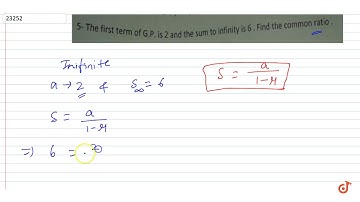 23252
5- The first term of G.P. is 2 and the sum to infinity is 6 . Find the common ratio .
Infinite
a → 2 & S∞ = 6
S = a / 1-r
S = a / 1-r
⇒ 6 = 2
doubtnut